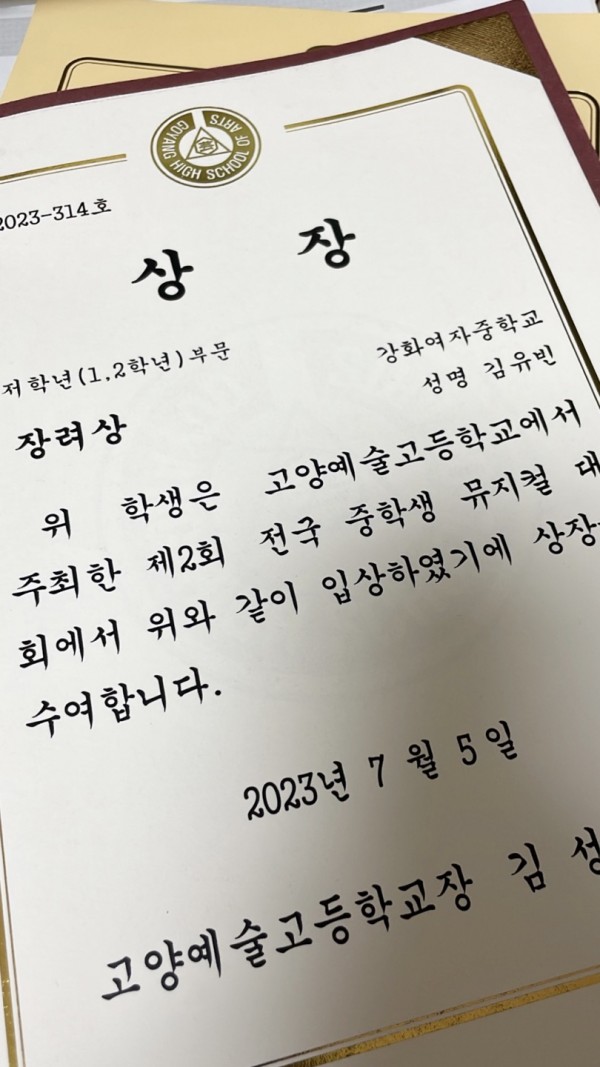 GOYANG HIGH SCHOOL OF ARTS
2023-314호
상 장
저학년(1,2학년)부문
강화여자중학교
장려상
성명 김유빈
위 학생은 고양예술고등학교에서
주최한 제2회 전국 중학생 뮤지컬 대
회에서 위와 같이 입상하였기에 상장
수여합니다.
2023년 7 월 5 일
고양예술고등학교장 김 성